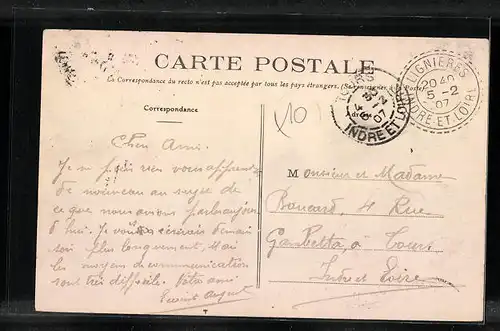 CARTE POSTALE
La Correspondance du recto n'est pas acceptée par tous les pays étrangers. (Se renseigner à la Poste)
Correspondance
Cher Ami.
Je ne puis rien vous apprendre
de nouveau au sujet de
ce que nous avons parlé aujour
d'hui. Je vous écrirai demain
soir plus longuement, mais
les moyens de communication
sont très difficile. Votre ami
(10)
TOURS
INDRE ET LOIRE
LIGNIERES
20 40
5 -2
07
INDRE ET LOIRE
Monsieur et Madame
Boucard, 4 Rue
Gambetta, à Tours
Indre et Loire